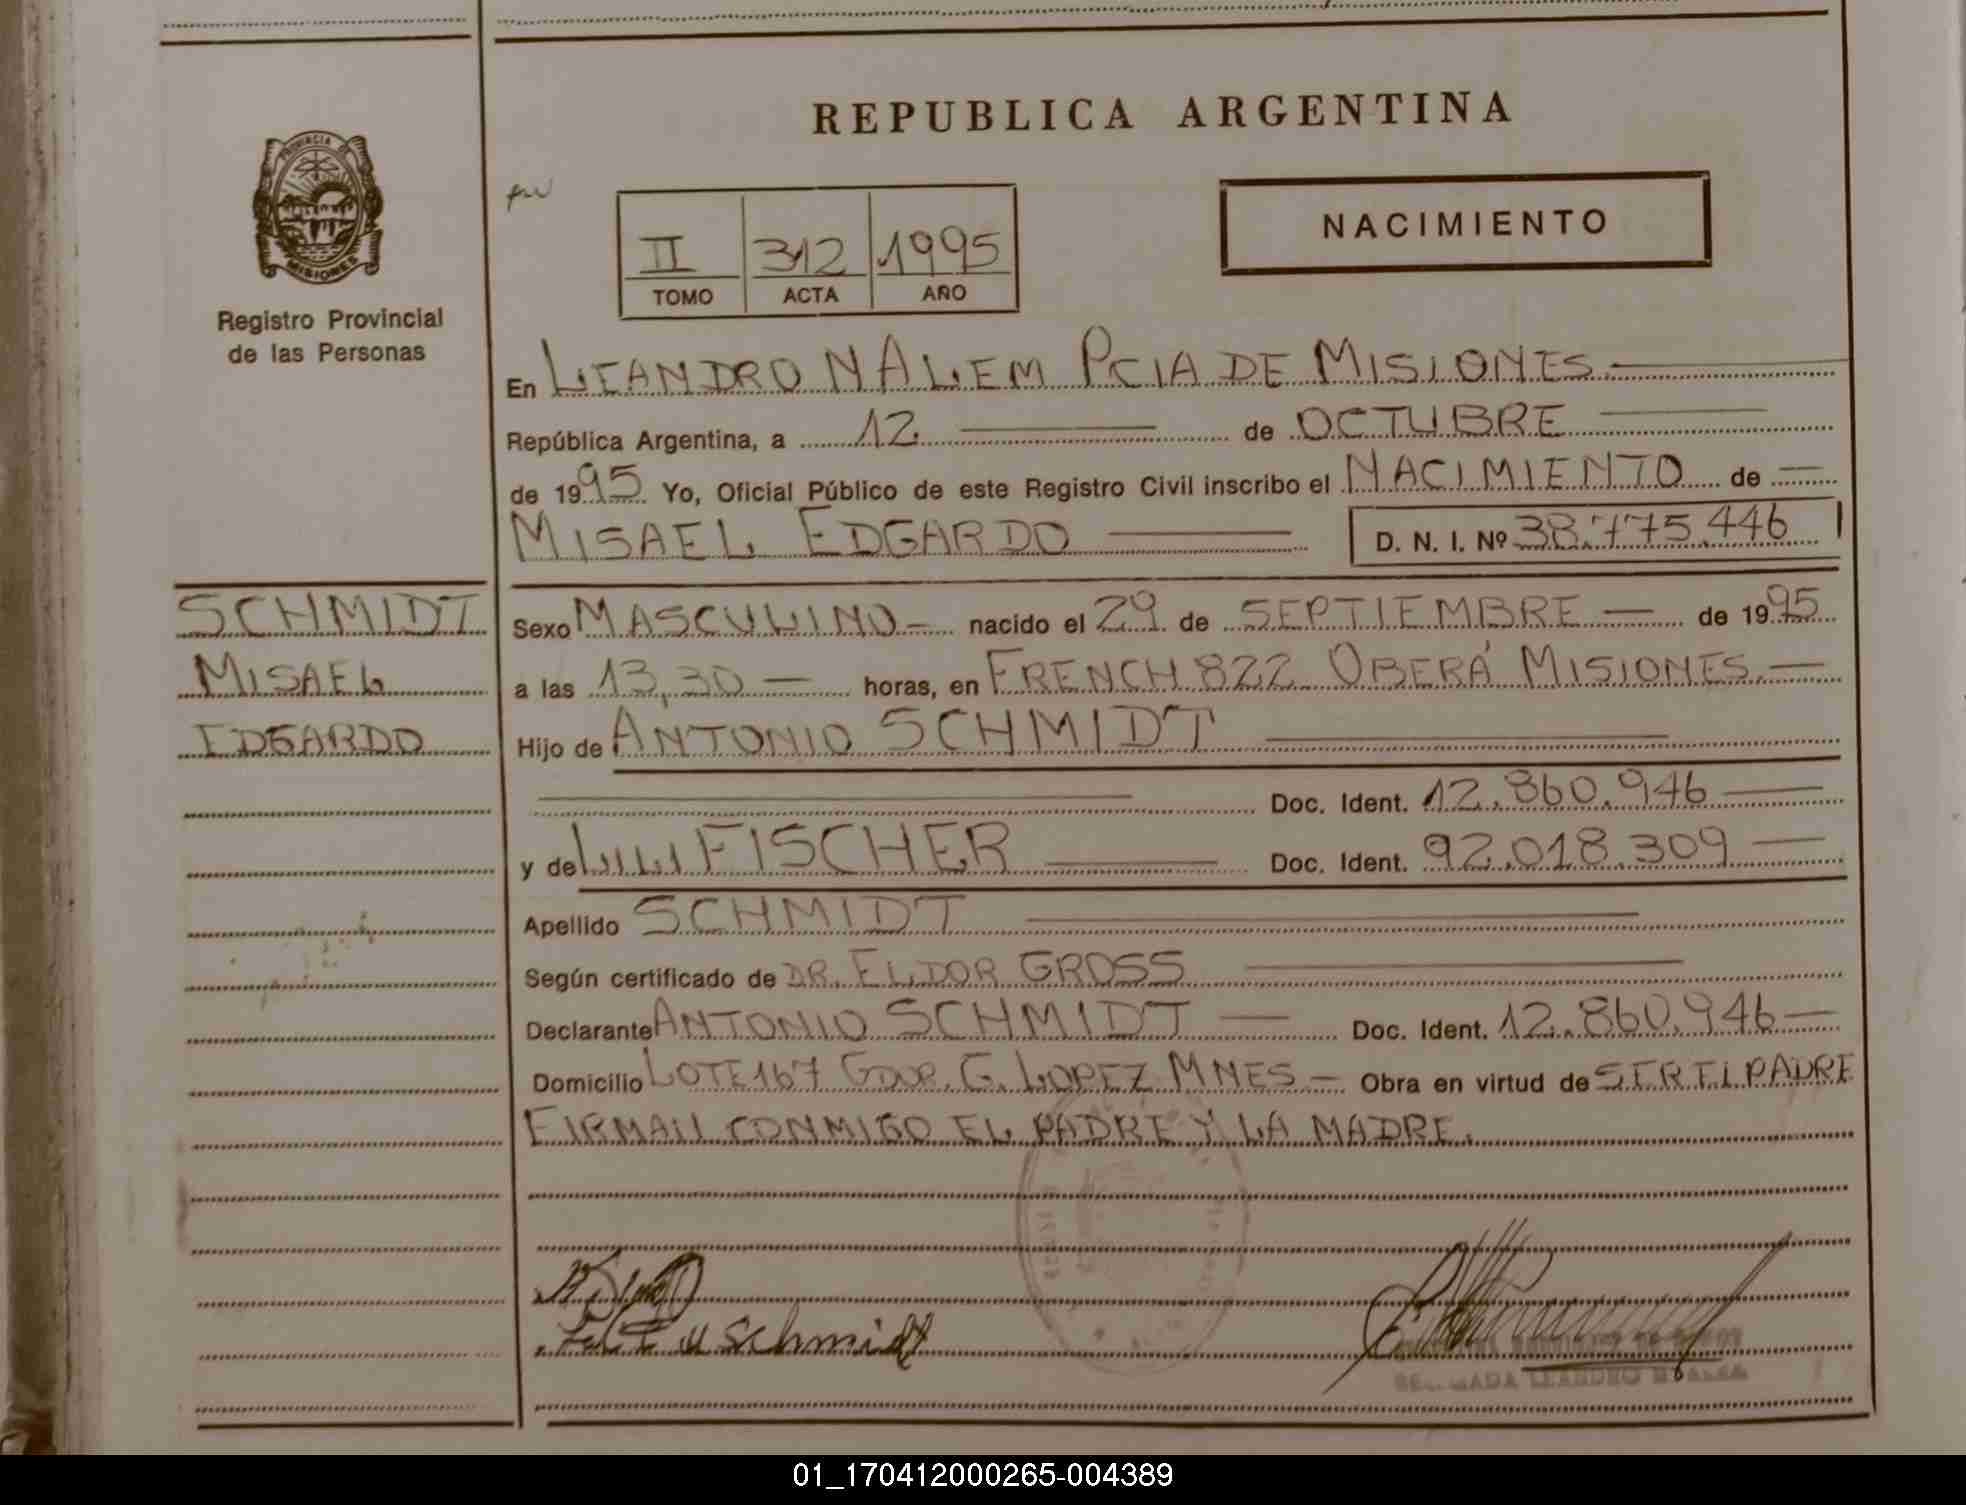 REPUBLICA ARGENTINA
PROVINCIA DE
MISIONES
Registro Provincial
de las Personas
NACIMIENTO
II 312 1995
TOMO ACTA AÑO
En LEANDRO N ALEM PCIA DE MISIONES
República Argentina, a 12 de OCTUBRE
de 1995 Yo, Oficial Público de este Registro Civil inscribo el NACIMIENTO de
MISAEL EDGARDO D. N. I. Nº 38.775.446
SCHMIDT
MISAEL
EDGARDO
Sexo MASCULINO nacido el 29 de SEPTIEMBRE de 1995
a las 13,30 horas, en FRENCH 822 OBERÁ MISIONES.
Hijo de ANTONIO SCHMIDT
Doc. Ident. 12.860.946
y de LILI FISCHER Doc. Ident. 92.018.309
Apellido SCHMIDT
Según certificado de DR. ELDOR GROSS
Declarante ANTONIO SCHMIDT Doc. Ident. 12.860.946
Domicilio LOTE 167 GDOR. G. LOPEZ MNES Obra en virtud de SER EL PADRE
FIRMAN CONMIGO EL PADRE Y LA MADRE.
Schmidt
LEANDRO N. ALEM
01_170412000265-004389